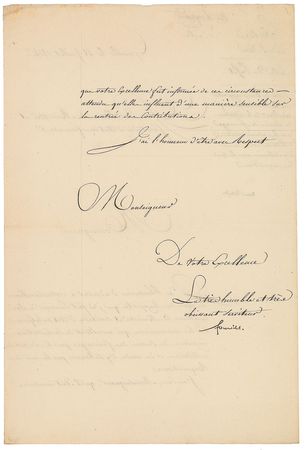 que votre Excellence fut informée de ces circonstances —
attendu qu'elles influent d'une manière sensible sur
la rentrée des Contributions.
J'ai l'honneur d'être avec Respect
Monseigneur
De Votre Excellence
Le très humble et très
obéissant serviteur.